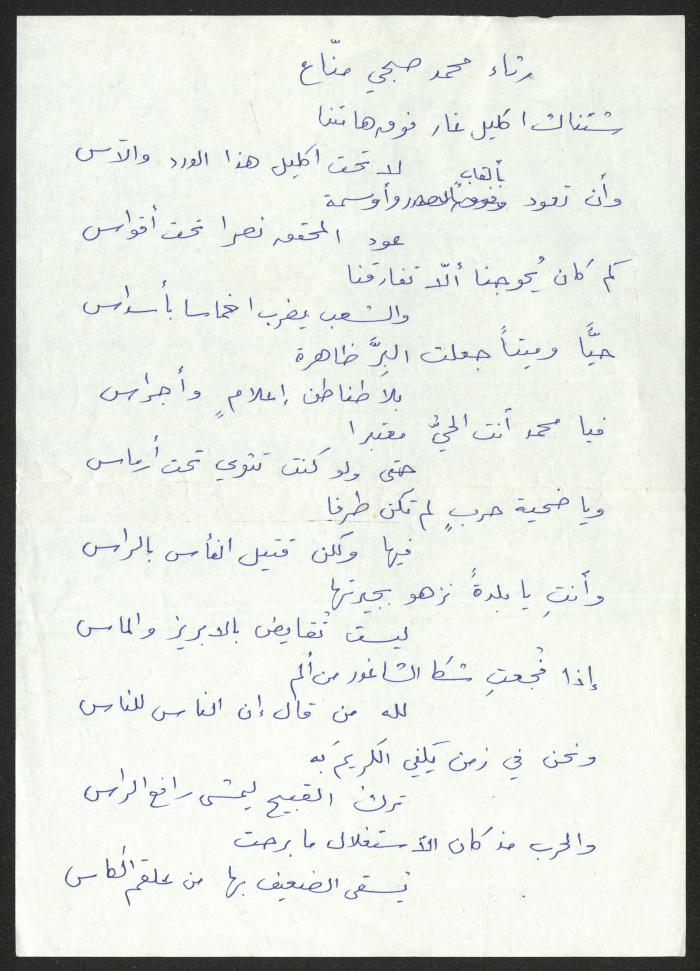 رثاء محمد صبحي منّاع
شئناك اكليل غار فوق هامتنا
لا تحت اكليل هذا الورد والآس
وأن تعود بألقاب وأوسمة
عود المحقق نصرا تحت أقواس
كم كان يُحوجنا ألّا تفارقنا
والشعب يضرب اخماسا بأسداس
حيًّا وميتاً جعلت البِرَّ ظاهرة
بلا طناطن إعلامٍ وأجراس
فيا محمد أنت الحيُّ مقبرا
حتى ولو كنت تثوي تحت أرماس
ويا ضحية حربٍ لم تكن طرفا
فيها ولكن قتيل الفأس بالراس
وأنتِ يا بلدةً نزهو بجيرتها
ليست تُقايض بالابريز والماس
إذا فُجعتِ شكا الشاغور من ألم
لله من قال إن الناس للناس
ونحن في زمن يكفي الكريمَ به
تركُ القبيح ليمشي رافع الراس
والحرب مذ كان الأستغلال ما برحت
يُسقى الضعيف بها من علقم الكاس